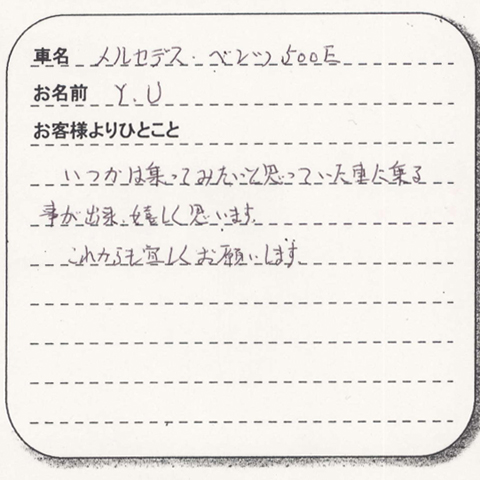 車名 メルセデス・ベンツ 500E
お名前 Y.U
お客様よりひとこと
いつかは乗ってみたいと思っていた車に乗る
事が出来、嬉しく思います。
これからも宜しくお願いします。